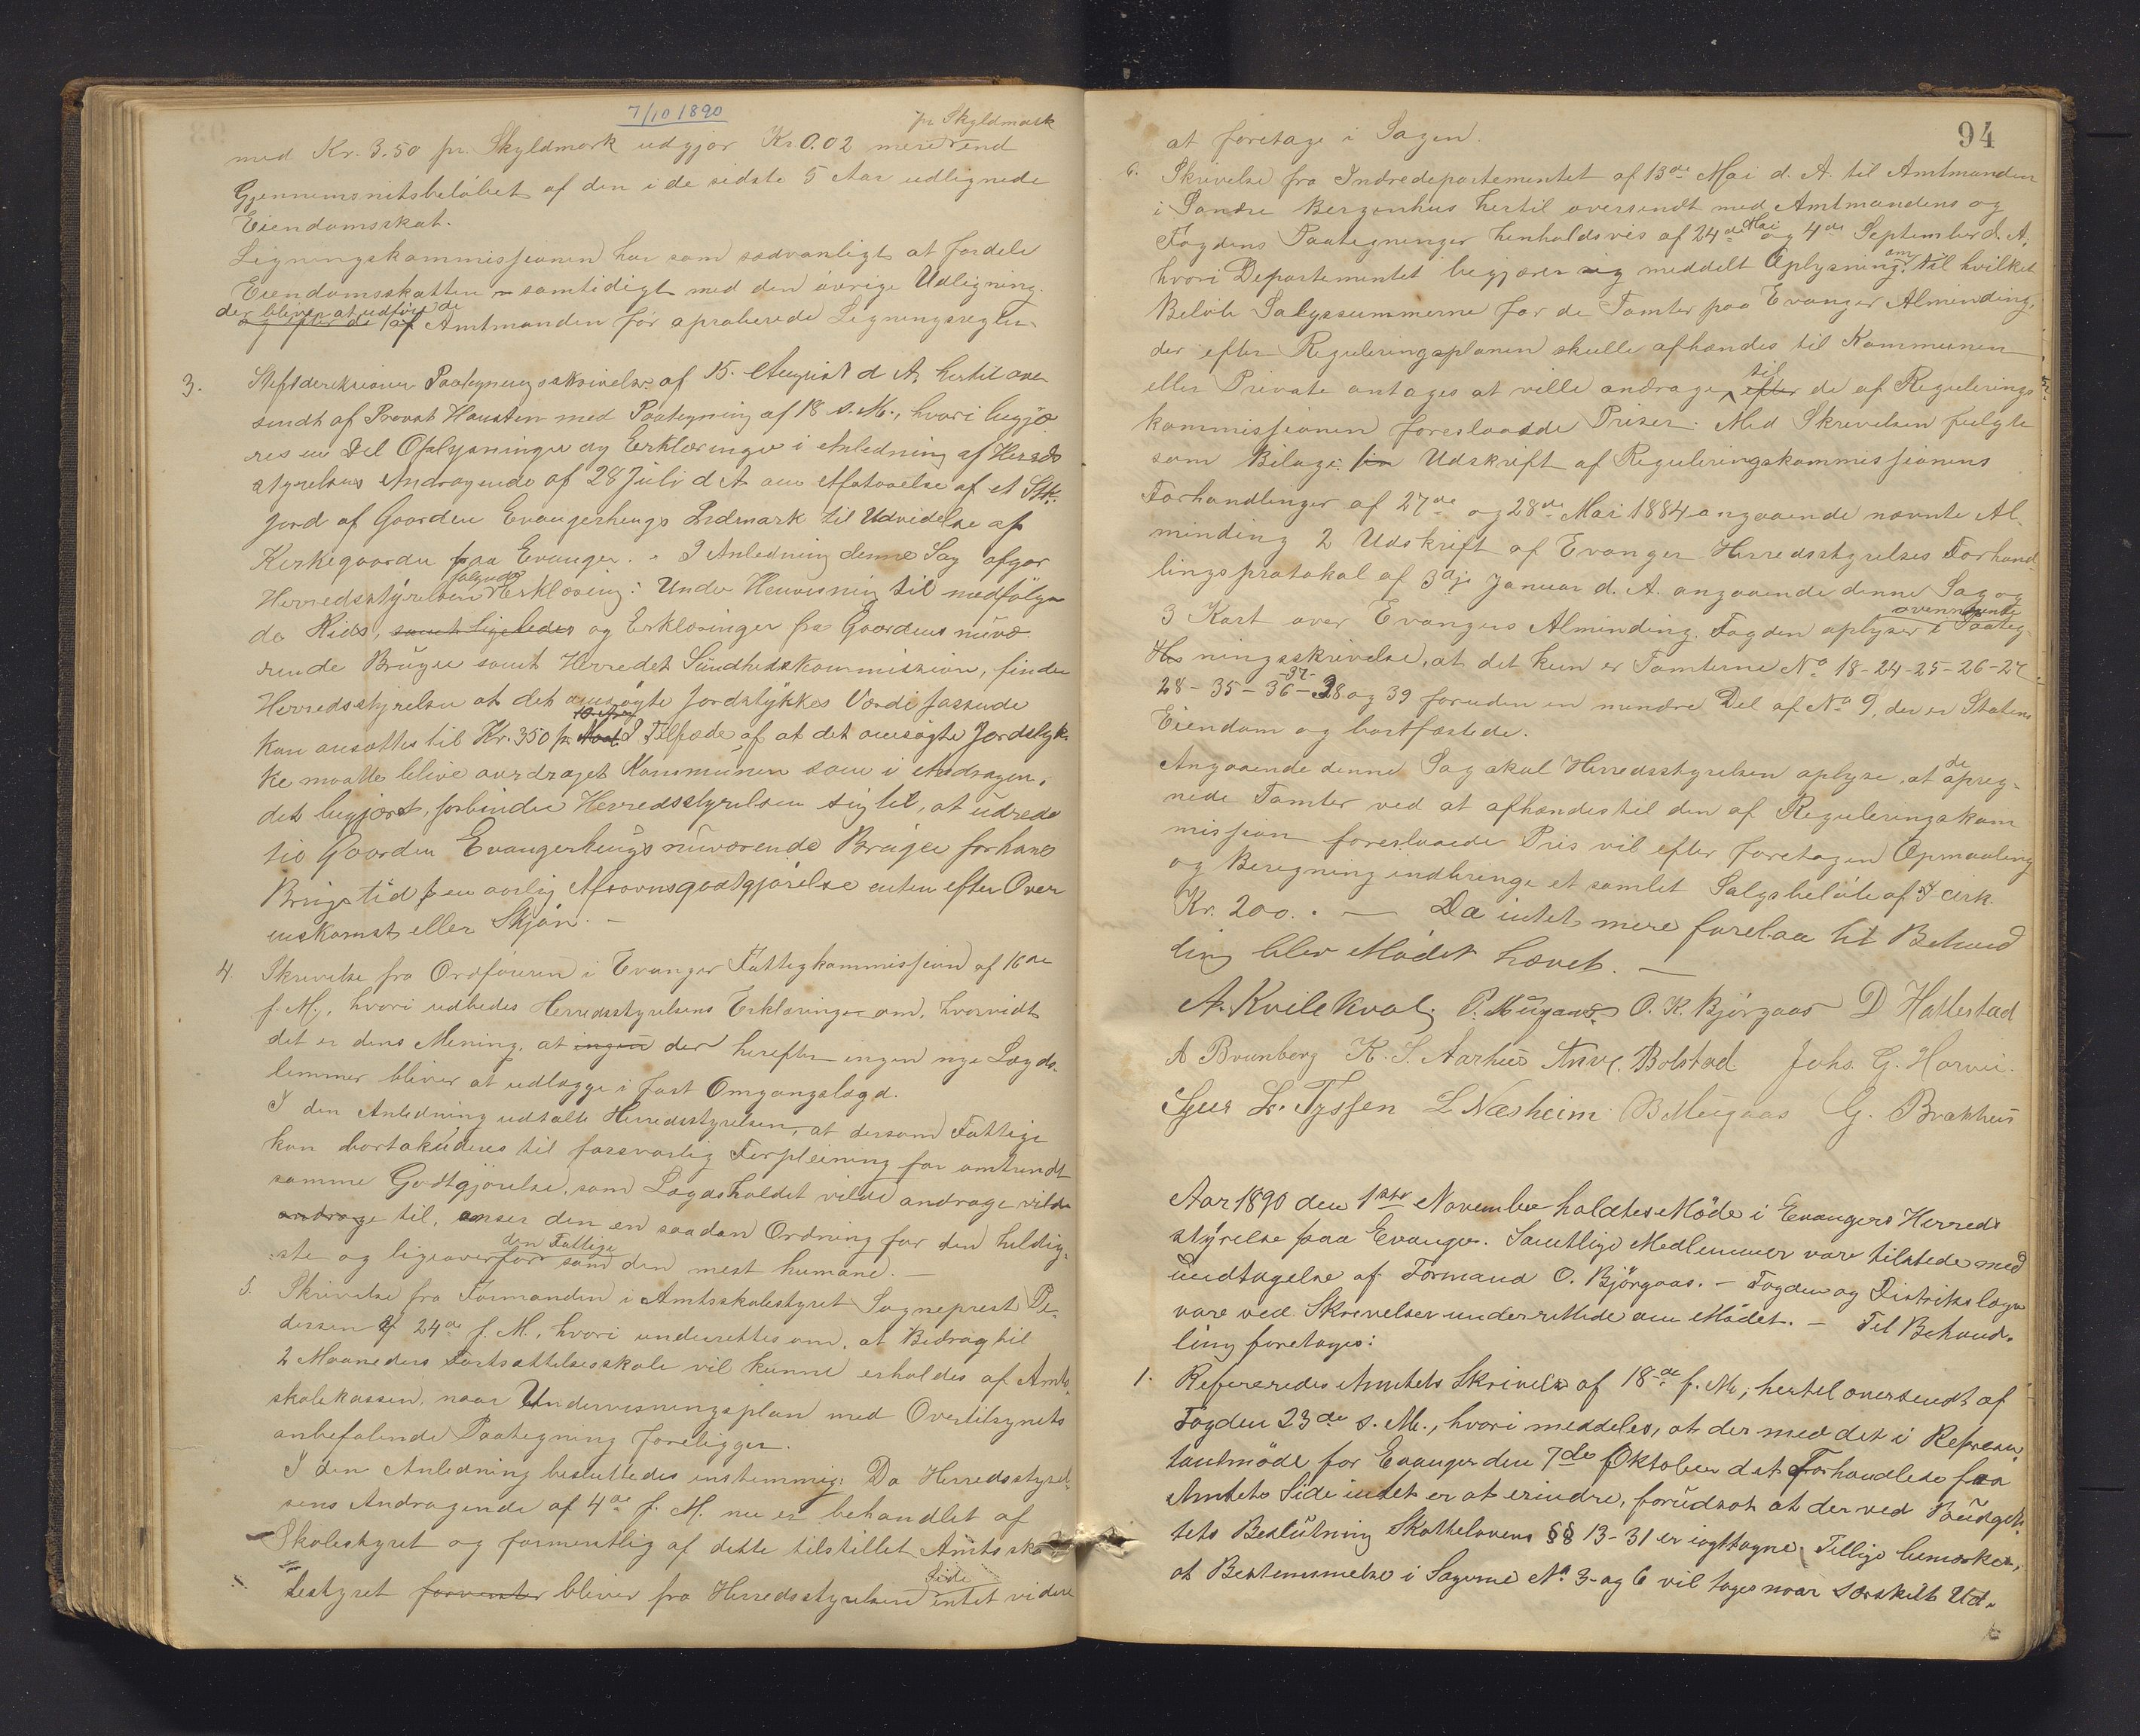 7/10 1890
pr Skyldmark
med Kr. 3.50 pr. Skyldmark udgjør Kr 0.02 mere end
Gjennemsnitsbeløbet af den i de sidste 5 Aar udlignede
Eiendomsskat.
Ligningskommissionen har som sædvanligt at fordele
Eiendomsskatten samtidigt med den øvrige Udligning
der bliver at udføre de
og af Amtmanden før aproberede Ligningsregler.
3. Stiftsdireksionens Paategningsskrivelse af 15. August d A, hertil over
sendt af Provst Hausten med Paategning af 18 s. M., hvori begjæ
res en Del Oplysninger og Erklæringer i Anledning af Herreds
styrelsens Andragende af 28 Juli d A om Afstaaelse af et Stk.
Jord af Gaarden Evangerhengs Indmark til Udvidelse af
Kirkegaarden paa Evanger. I Anledning denne Sag afgav
følgende
Herredsstyrelsen Erklæring: Under Henvisning til medfølgen
de Rids, samt ligeledes og Erklæringer fra Gaardens nuvæ
rende Bruger samt Herredets Sundhedskommission, finder
Herredsstyrelsen at det omsøgte Jordstykkes Værdi passende
kan ansættes til Kr. 350 pr. I Tilfælde af at det omsøgte Jordstyk
ke maatte blive overdraget Kommunen som i Andragen,
det begjæret, forbinder Herredsstyrelsen sig til, at udrede
til Gaarden Evangerhengs nuværende Bruger for hans
Brugstid en aarlig Afsavnsgodtgjørelse enten efter Over
enskomst eller Skjøn. —
4. Skrivelse fra Ordføreren i Evanger Fattigkommission af 16de
f. M., hvori udbedes Herredsstyrelsens Erklæring om, hvorvidt
det er dens Mening, at ingen der herefter ingen nye Lægds-
lemmer bliver at udlægge i fast Omgangslægd.
I den Anledning udtalte Herredsstyrelsen, at dersom Fattige
kan bortakorderes til forsvarlig Forpleining for omtrendt
samme Godtgjørelse, som Lægdsholdet vilde andrage vilde
andrage til, anser den en saadan Ordning for den heldig-
den Fattige
ste og ligeoverfor som den mest humane. —
5. Skrivelse fra Formanden i Amtsskolestyret Sogneprest Pe-
dersen af 24de f. M., hvori underrettes om, at Bidrag til
2 Maaneders Fortsættelsesskole vil kunne erholdes af Amts
skolekassen, naar Undervisningsplan med Overtilsynets
anbefalende Paategning foreligger.
I den Anledning besluttedes enstemmig: Da Herredsstyrel
sens Andragende af 4de f. M. nu er behandlet af
Skolestyret og formentlig af dette tilstillet Amtssko
Side
lestyret forventer bliver fra Herredsstyrelsen intet videre
94
at foretage i Sagen.
6. Skrivelse fra Indredepartementet af 13de Mai d. A. til Amtmanden
i Søndre Bergenhus hertil oversendt med Amtmandens og
Fogdens Paategninger henholdsvis af 24de Mai og 4de September d. A,
hvori Departementet begjærer sig meddelt Oplysning om til hvilket
Beløb Salgssummerne for de Tomter paa Evanger Alminding,
der efter Reguleringsplanen skulle afhændes til Kommunen
til
eller Private antages at ville andrage efter de af Regulerings
kommissionen foreslaaede Priser. Med Skrivelsen fulgte
som Bilage: Udskrift af Reguleringskommissionens
Forhandlinger af 27de og 28de Mai 1884 angaaende nævnte Al
minding 2 Udskrift af Evanger Herredsstyrelses Forhand
lingsprotokol af 3dje Januar d. A. angaaende denne Sag og
ovennævnte
3 Kart over Evangers Alminding. Fogden oplyser i Paateg
ningsskrivelse, at det kun er Tomterne No 18-24-25-26-27
28-35-36-37-38 og 39 foruden en mindre Del af No 9, der er Statens
Eiendom og bortfæstede.
Angaaende denne Sag skal Herredsstyrelsen oplyse, at de opreg-
nede Tomter ved at afhændes til den af Reguleringskom
mission foreslaaede Pris vil efter foretagen Opmaaling
og Beregning indbringe et samlet Salgsbeløb af cirk.
Kr. 200. — Da intet mere forelaa til Behand
ling blev Mødet hævet. —
A. Kvilekval. P. Mügaas. O. K. Bjørgaas D Hallestad
A Brunborg K. S. Aarhus Bolstad Johs. G. Horvei.
Sjur L. Tyssen L Næsheim B Mügaas G. Brækhus
Aar 1890 den 1ste November holdtes Møde i Evangers Herreds
styrelse paa Evanger. Samtlige Medlemmer var tilstede med
Undtagelse af Formand O. Bjørgaas. — Fogden og Distriktslægen
vare ved Skrivelser underrettede om Mødet. — Til Behand-
ling foretoges:
1. Refereredes Amtets Skrivelse af 18de f. M, hertil oversendt af
Fogden 23de s. M., hvori meddeles, at der med det i Repræsen
tantmøde for Evanger den 7de Oktober det Forhandlede fra
Amtets Side intet er at erindre, forudsat at der ved Budget
tets Beslutning Skattelovens §§ 13-31 er iagttagne. Tillige bemærkes,
at Bestemmelse i Sagerne No 3 og 6 vil tages naar særskilt Ud-